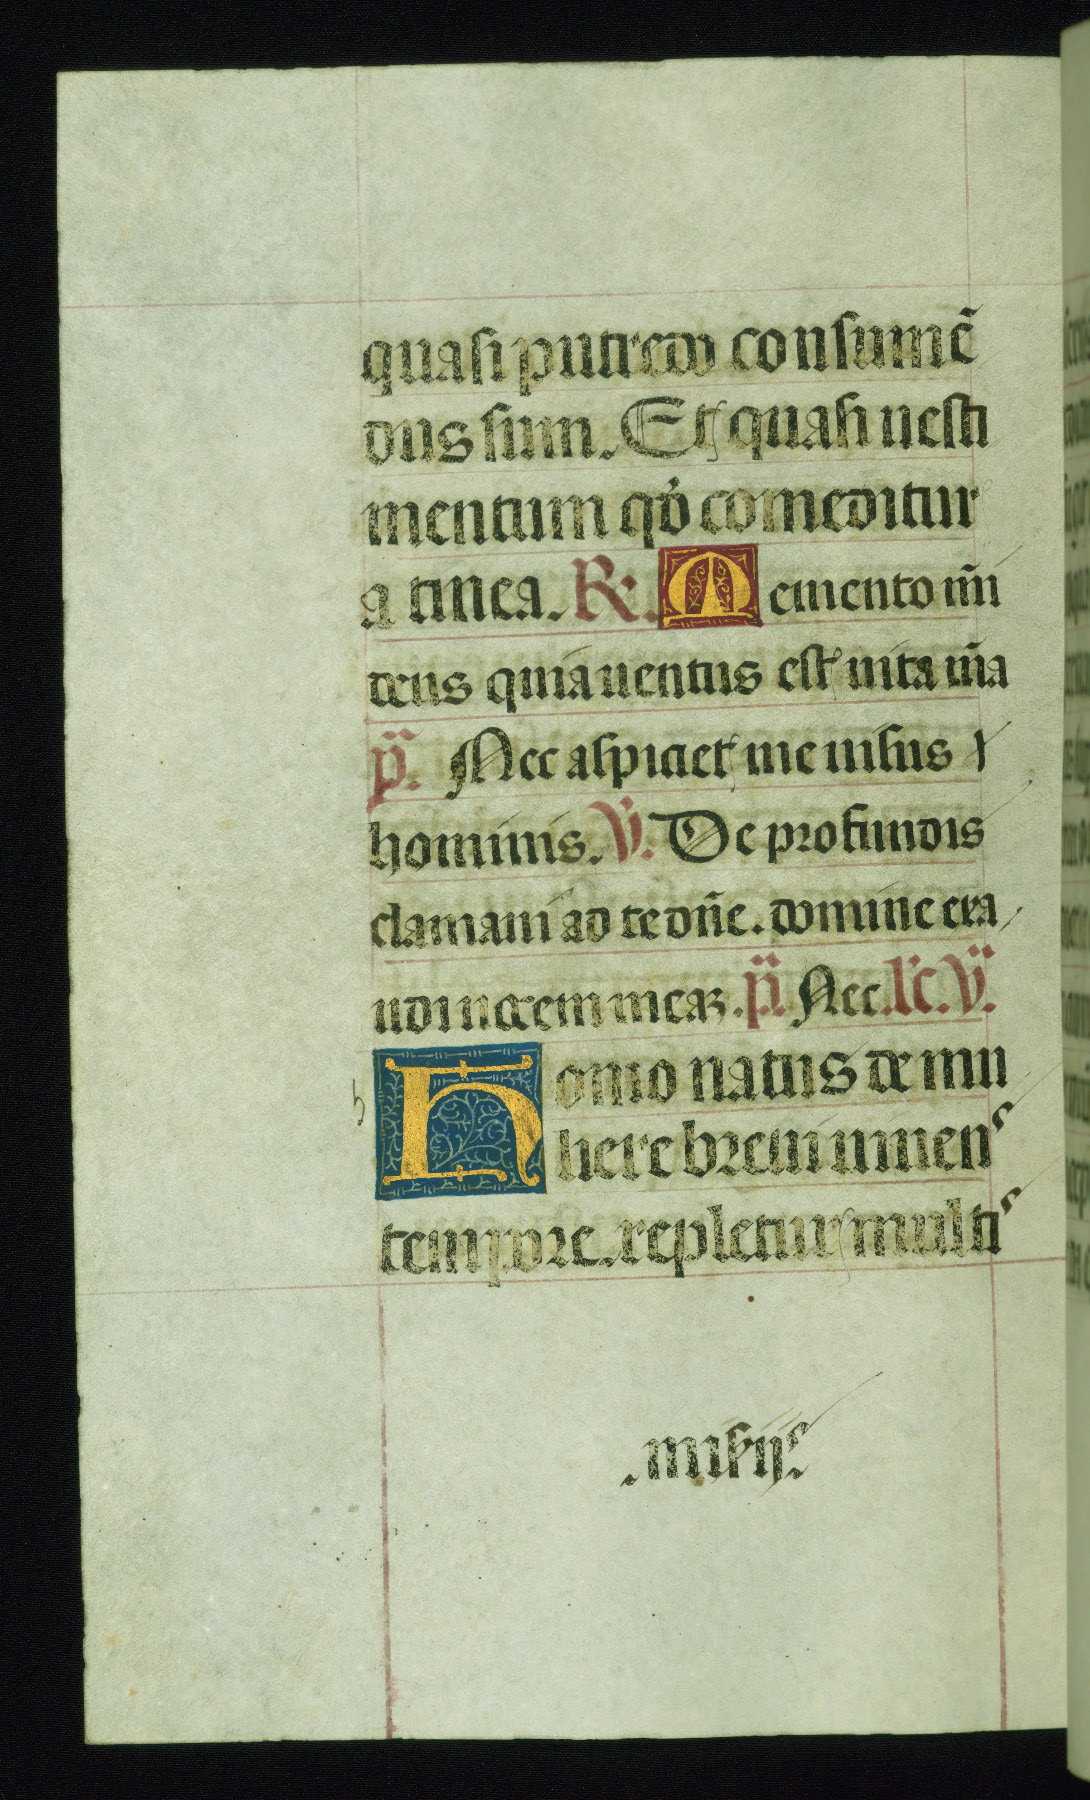 quasi putredo consumē
dus sum. Et quasi uesti
mentum qđ comeditur
a tinea. R. Memento mī
deus quia uentus est uita mā
p̄. Nec aspiciet me uisus
hominis. V. De profundis
clamaui ad te dn̄e. domine exa
udi uocem meaꝫ. p̄. Nec. lc̄. V.
Homo natus de mu
liere breui uiuens
tempore. repletur multis
.misijs.